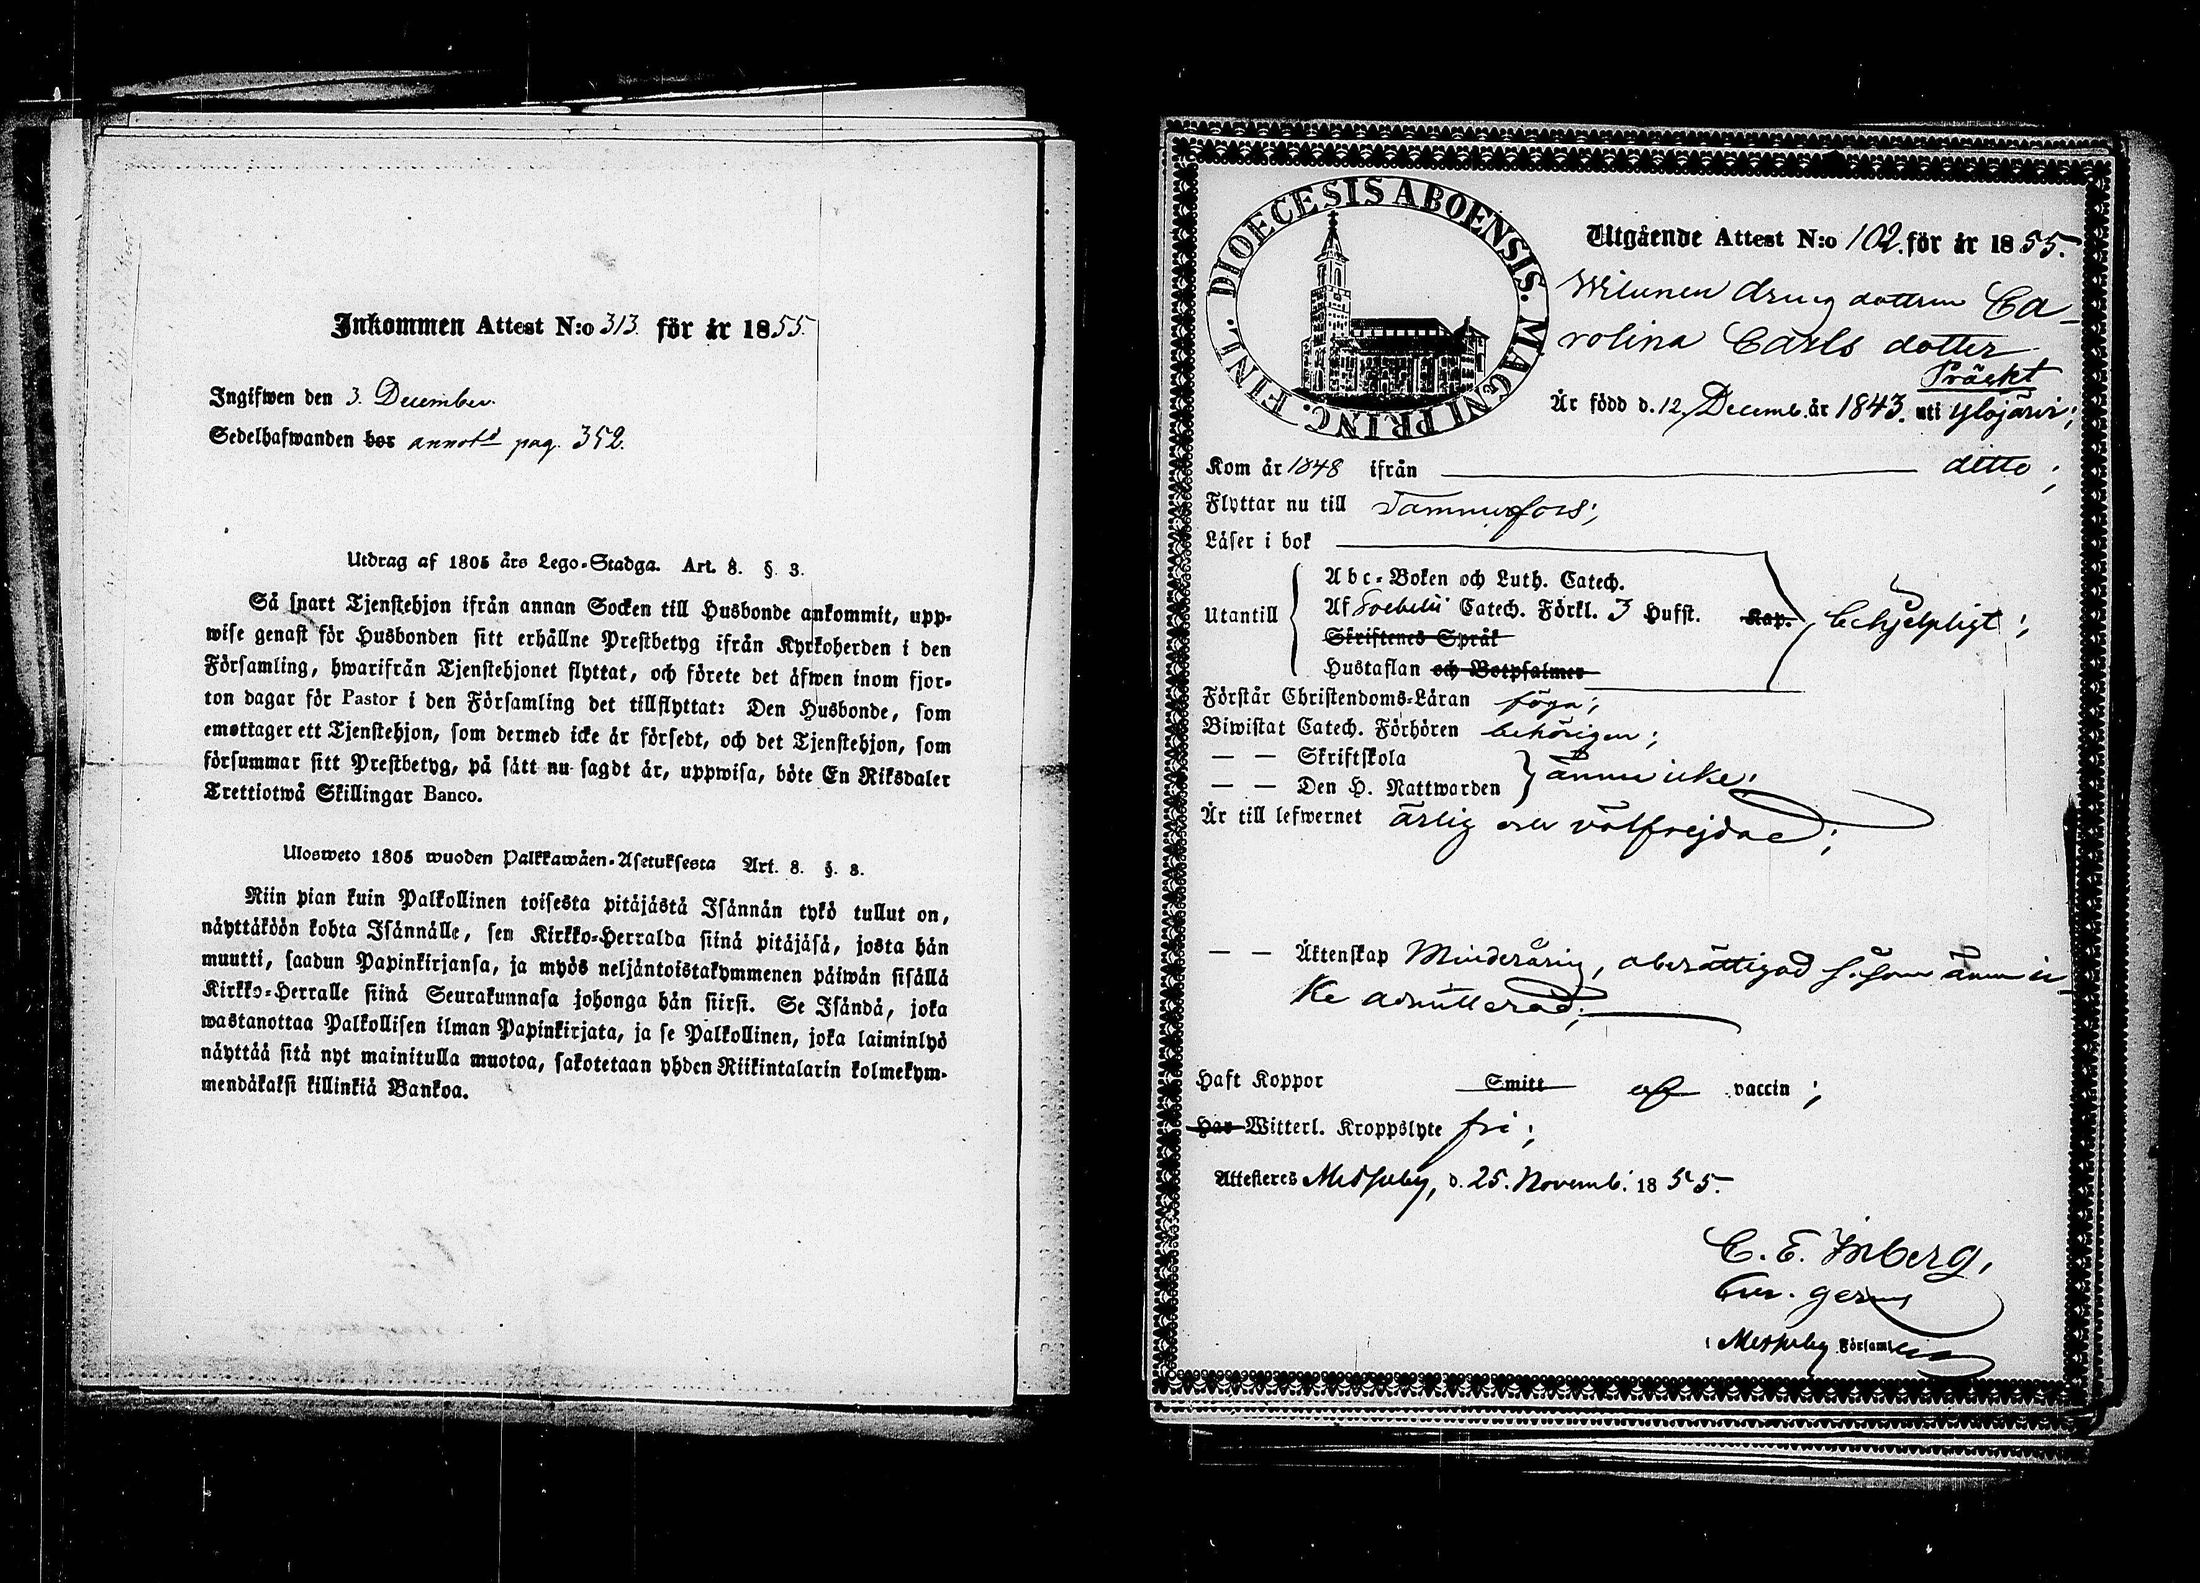 Inkommen Attest N:o 313. för år 1855.
Ingifwen den 3. December.
Sedelhafwanden bor annot.d pag. 352.
Utdrag af 1805 års Lego-Stadga. Art. 8. §. 3.
Så snart Tjenstehjon ifrån annan Socken till Husbonde ankommit, upp-
wise genast för Husbonden sitt erhållne Prestbetyg ifrån Kyrkoherden i den
Församling, hwarifrån Tjenstehjonet flyttat, och förete det äfwen inom fjor-
ton dagar för Pastor i den Församling det tillflyttat: Den Husbonde, som
emottager ett Tjenstehjon, som dermed icke är försedt, och det Tjenstehjon, som
försummar sitt Prestbetyg, på sätt nu sagdt är, uppwisa, böte En Riksdaler
Trettiotwå Skillingar Banco.
Ulosweto 1805 wuoden Palkkawäen-Asetuksesta Art. 8. §. 3.
Niin pian kuin Palkollinen toisesta pitäjästä Isännän tykö tullut on,
näyttäköön kohta Isännälle, sen Kirkko-Herralda siinä pitäjäsä, josta hän
muutti, saadun Papinkirjansa, ja myös neljäntoistakymmenen päiwän sisällä
Kirkko-Herralle siinä Seurakunnasa johonga hän siirsi. Se Isändä, joka
wastanottaa Palkollisen ilman Papinkirjata, ja se Palkollinen, joka laiminlyö
näyttää sitä nyt mainitulla muotoa, sakotetaan yhden Riikintalarin kolmekym-
mendäkaksi killinkiä Bankoa.
DIOECESIS ABOENSIS. MAGNI PRINC. FINL.
Utgående Attest N:o 102. för år 1855.
dottren Ca-
rolina Carls dotter
Präckt
Är född d. 12. Decemb. år 1843. uti Ylöjärvi;
Kom år 1848 ifrån ditto;
Flyttar nu till Tammerfors;
Läser i bok
Abc-Boken och Luth. Catech.
Utantill Af Svebelii Catech. Förkl. 3 Hufst. Kap. behjelpligt;
Skriftenes Språk
Hustaflan och Botpsalmer
Förstår Christendoms-Läran föga;
Biwistat Catech. Förhören behörigen;
— — Skriftskola
— — Den H. Nattwarden ännu icke;
Är till lefwernet ärlig och välfrejdad;
— — Äktenskap Minderårig, oberättigad såsom ännu ic-
ke admitterad;
Haft Koppor Smitt af vaccin;
Har Witterl. Kroppslyte fri;
Attesteres Messuby, d. 25. Novemb. 1855.
C. E. Inberg,
i Messuby Församl